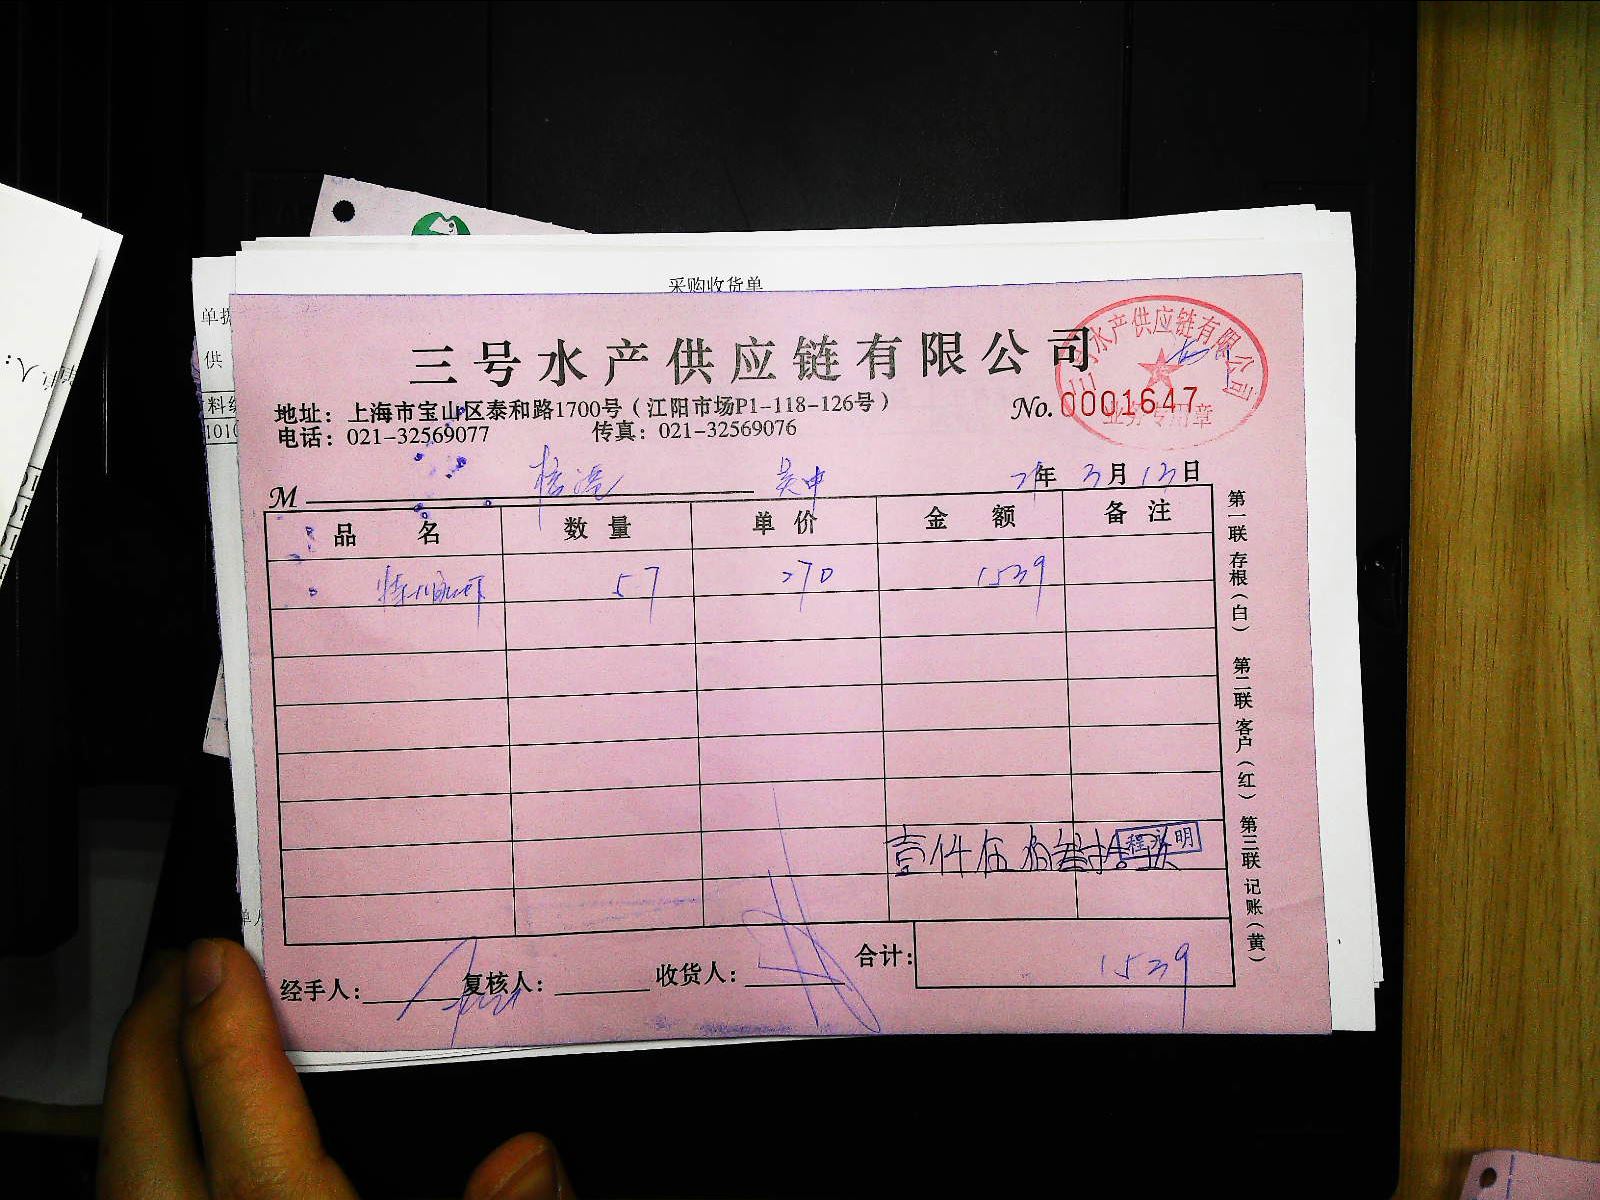 采购收货单
单据
供
料编
1010
单人
三号水产供应链有限公司
三号水产供应链有限公司
业务专用章
地址：上海市宝山区泰和路1700号（江阳市场P1-118-126号）
No. 0001647
电话：021-32569077 传真：021-32569076
M 吴中 年 3月13日
品名 数量 单价 金额 备注
57 270 1539
程永明
合计： 1539
经手人： 复核人： 收货人：
第一联 存根（白） 第二联 客户（红） 第三联 记账（黄）